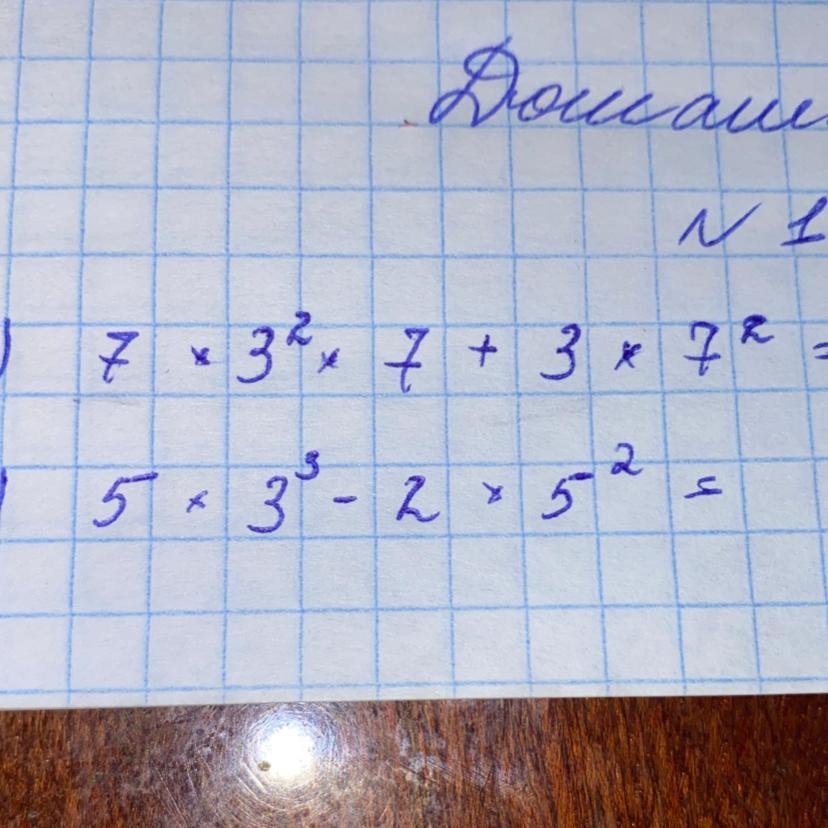 Домаш
N 1
) 7 × 3² × 7 + 3 × 7² =
) 5 × 3³ - 2 × 5² =